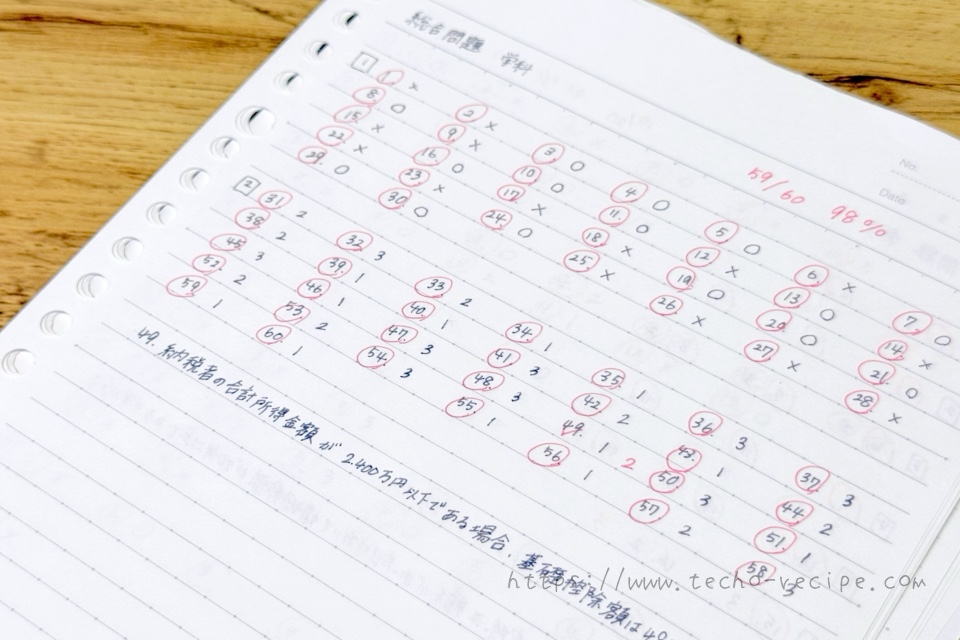 総合問題 学科
No.
Date
59/60 98%
1 1. × 2 × 3 ○ 4 ○ 5 ○ 6 × 7. ○
8 ○ 9 × 10 ○ 11. ○ 12 × 13 ○ 14 ×
15 × 16 ○ 17 × 18 × 19 ○ 20 ○ 21 ○
22 × 23 × 24 ○ 25 × 26 × 27 × 28 ×
29 ○ 30 ○
2 31 2 32 3 33 2 34 1 35 1 36 3 37 3
38 2 39 1 40 1 41 3 42 2 43 1 44 2
45 3 46 1 47 3 48 3 49. 1 2 50 3 51 1
52 2 53 2 54 3 55 1 56 1 57 2 58 3
59 1 60 1
49. 納税者の合計所得金額が2,400万円以下である場合、基礎控除額は
https://www.techo-recipe.com